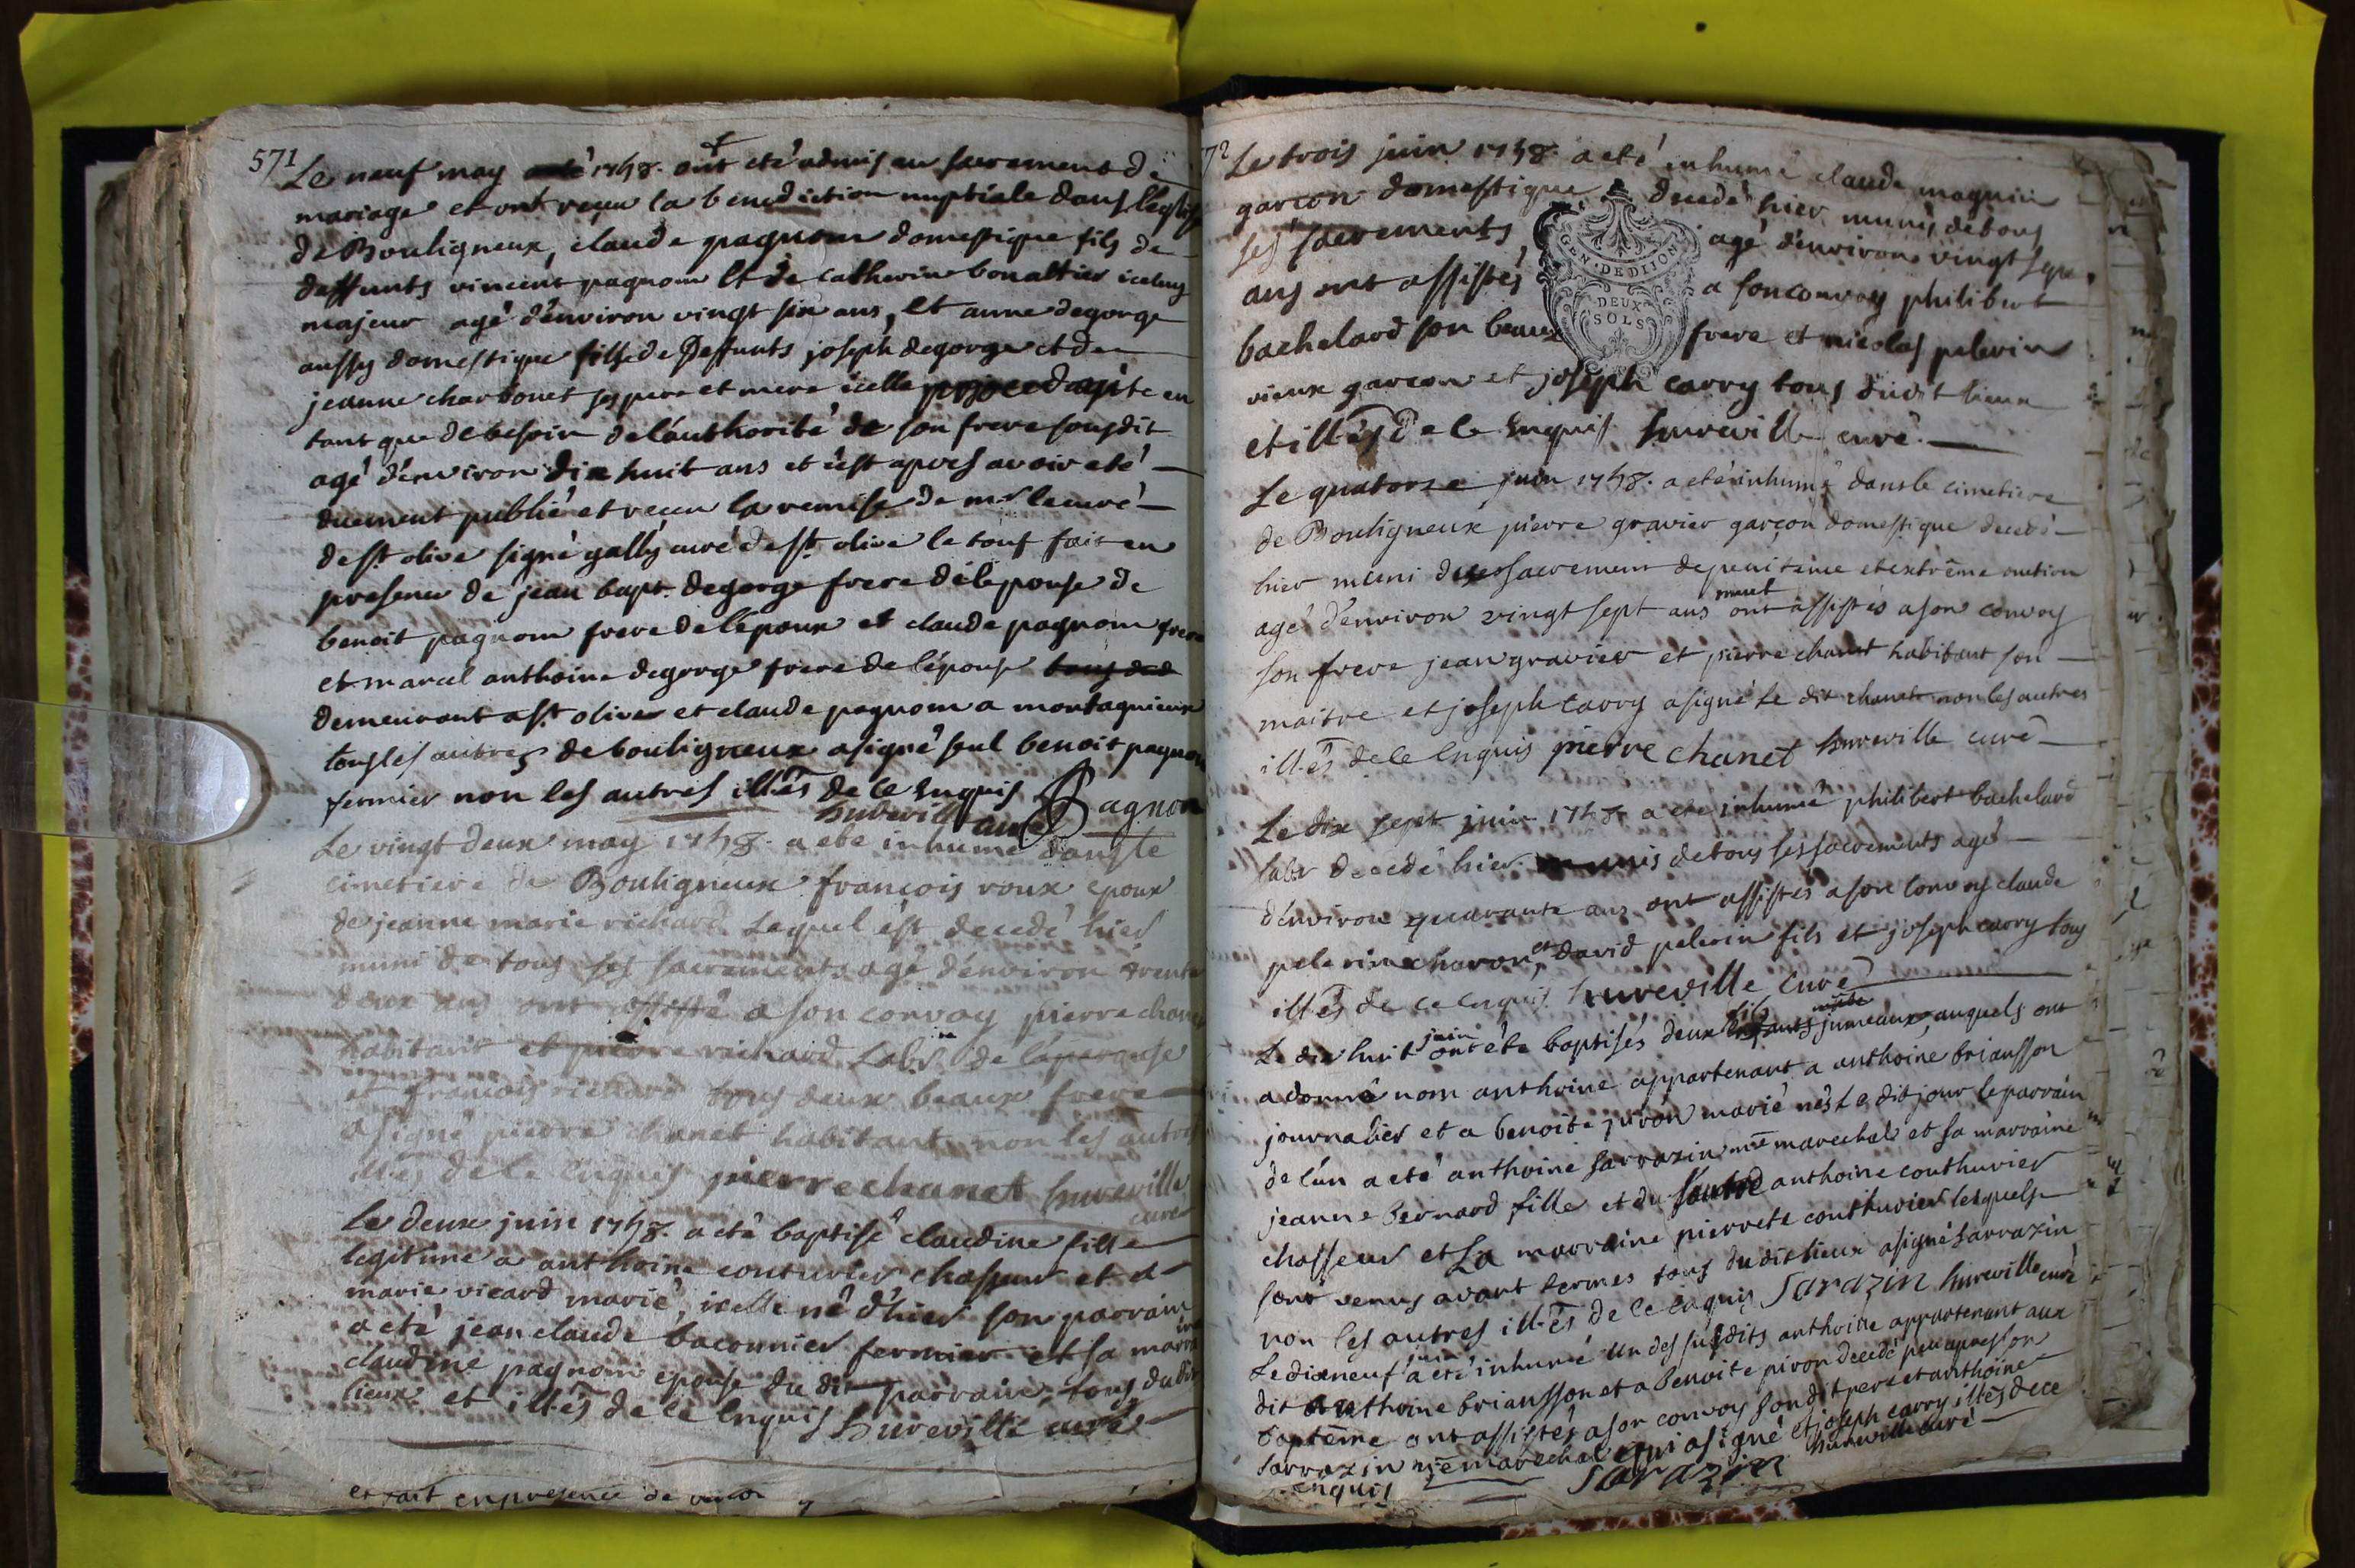 571
Le neuf may 1748. ont eté admis au sacrement de
mariage et ont reçeu la benediction nuptiale dans l'eglise
de Bouligneux, claude pagnom domestique fils de
deffunts vincent pagnom et de catherine bonaltier iceluy
majeur agé d'environ vingt six ans, et anne degorge
aussy domestique fille de Deffunts joseph degorge et de
jeanne charbonet ses pere et mere icelle en
tant que de besoin de l'authorité de son frere sousdit
agé d'environ dix huit ans et c'est apres avoir eté
duement publié et receu la remise de mr le curé
de st. olive signé gally curé de st. olive le tout fait en
presence de jean bapt. degorge frere de l'epouse de
benoit pagnom frere de l'epoux et claude pagnom frere
et marcel anthoine degorge frere de l'épouse
demeurant a st. olive et claude pagnom a montagnieux
tous les autres de bouligneux a signé seul benoit pagnom
fermier non les autres illés de ce Enquis Pagnon
hureville curé
Le vingt deux may 1748. a ete inhumé dans le
cimetiere de Bouligneux francois roux epoux
de jeanne marie richard Lequel est decedé hier
muni de tous ses sacrements agé d'environ trente
deux ans ont assisté a son convoy pierre chanet
habitant et pierre richard Labr. de la perouse
et francois richard tous deux beaux frere
a signé pierre chanet habitant non les autres
illés de ce Enquis pierre chanet hureville
curé
Le deux juin 1748. a eté baptisé claudine fille
legitime a anthoine couturier chasseur et a
marie vicard marié, icelle né d'hier son parrain
a eté jean claude baconnier fermier et sa marraine
claudine pagnom epouse du dit parrain, tous du dit
lieux et illés de ce Enquis hureville curé
et fait en presence de
72
Le trois juin 1748. a eté inhumé claude magnin
garcon domestique decedé hier munis de tous
ses sacrements agé d'environ vingt sept
ans ont assistés a son convoy philibert
bachelard son beaux frere et nicolas pelerin
vieux garcon et joseph carry tous dudit lieux
et illés de ce Enquis hureville curé
GEN · DE DIJON
DEUX
SOLS
Le quatorze juin 1748. a eté inhumé dans le cimetiere
de Bouligneux pierre gravier garçon domestique decedé
hier muni des sacrement de penitence et extrême onction
agé d'environ vingt sept ans ont assistés a son convoy
son frere jean gravier et pierre chanet habitant son
maitre et joseph carry a signé le dit chanet non les autres
illés de ce Enquis pierre chanet hureville curé
Le dix sept juin 1748. a ete inhumé philibert bachelard
labr decedé hier munis de tous ses sacrements agé
d'environ quarante ans ont assistés a son convoy claude
pelerin charon, et david pelerin fils et joseph carry tous
illés de ce Enquis hureville Curé
Le dix huit juin ont ete baptisés deux fils jumeaux, auquels ont
a donné nom anthoine appartenant a anthoine briansson
journalier et a benoite piron marié nés Le dit jour le parrain
de l'un a eté anthoine sarrazin me marechal et sa marraine
jeanne Bernard fille et du l'autre anthoine couthurier
chasseur et La marraine pierrete couthurier lesquels
sont venus avant termes tous du dit lieux a signé sarrazin
non les autres illés de ce enquis Sarazin hureville curé
Le dixneuf juin a eté inhumé un des susdits anthoine appartenant aux
dit anthoine briansson et a Benoite piron decedé peu apres son
baptême ont assistés a son convoy son dit pere et anthoine
sarrazin me marechal qui a signé et joseph carry illés de ce
enquis Sarazin hureville curé